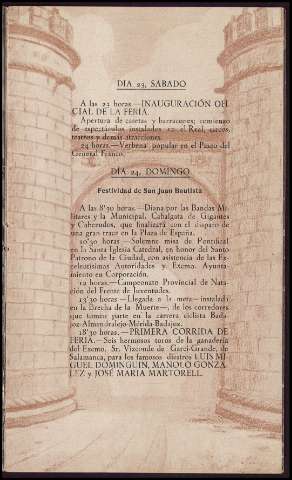 DIA 23, SABADO
A las 23 horas.—INAUGURACIÓN OFI
CIAL DE LA FERIA.
Apertura de casetas y barracones; comienzo
de espectáculos instalados en el Real, circos,
teatros y demás atracciones.
24 horas.—Verbena popular en el Paseo del
General Franco.
DIA 24, DOMINGO
Festividad de San Juan Bautista
A las 8'30 horas.—Diana por las Bandas Mi
litares y la Municipal. Cabalgata de Gigantes
y Cabezudos, que finalizará con el disparo de
una gran traca en la Plaza de España.
10'30 —Solemne misa de Pontifical
en la Santa Iglesia Catedral, en honor del Santo
Patrono de la Ciudad, con asistencia de las Ex
celentísimas Autoridades y Excmo. Ayunta-
miento en Corporación.
12 horas.—Campeonato Provincial de Nata
ción del Frente de Juventudes.
13'30 horas—Llegada a la meta—instalada
en la Brecha de la Muerte—, de los corredores
que toman parte en la carrera ciclista Bada-
joz-Almendralejo-Mérida-Badajoz.
18'30 horas.—PRIMERA CORRIDA DE
FERIA.—Seis hermosos toros de la ganadería
del Excmo. Sr. Vizconde de Garci-Grande, de
Salamanca, para los famosos diestros LUIS MI
GUEL DOMINGUIN, MANOLO GONZA
LEZ y JOSÉ MARIA MARTORELL.